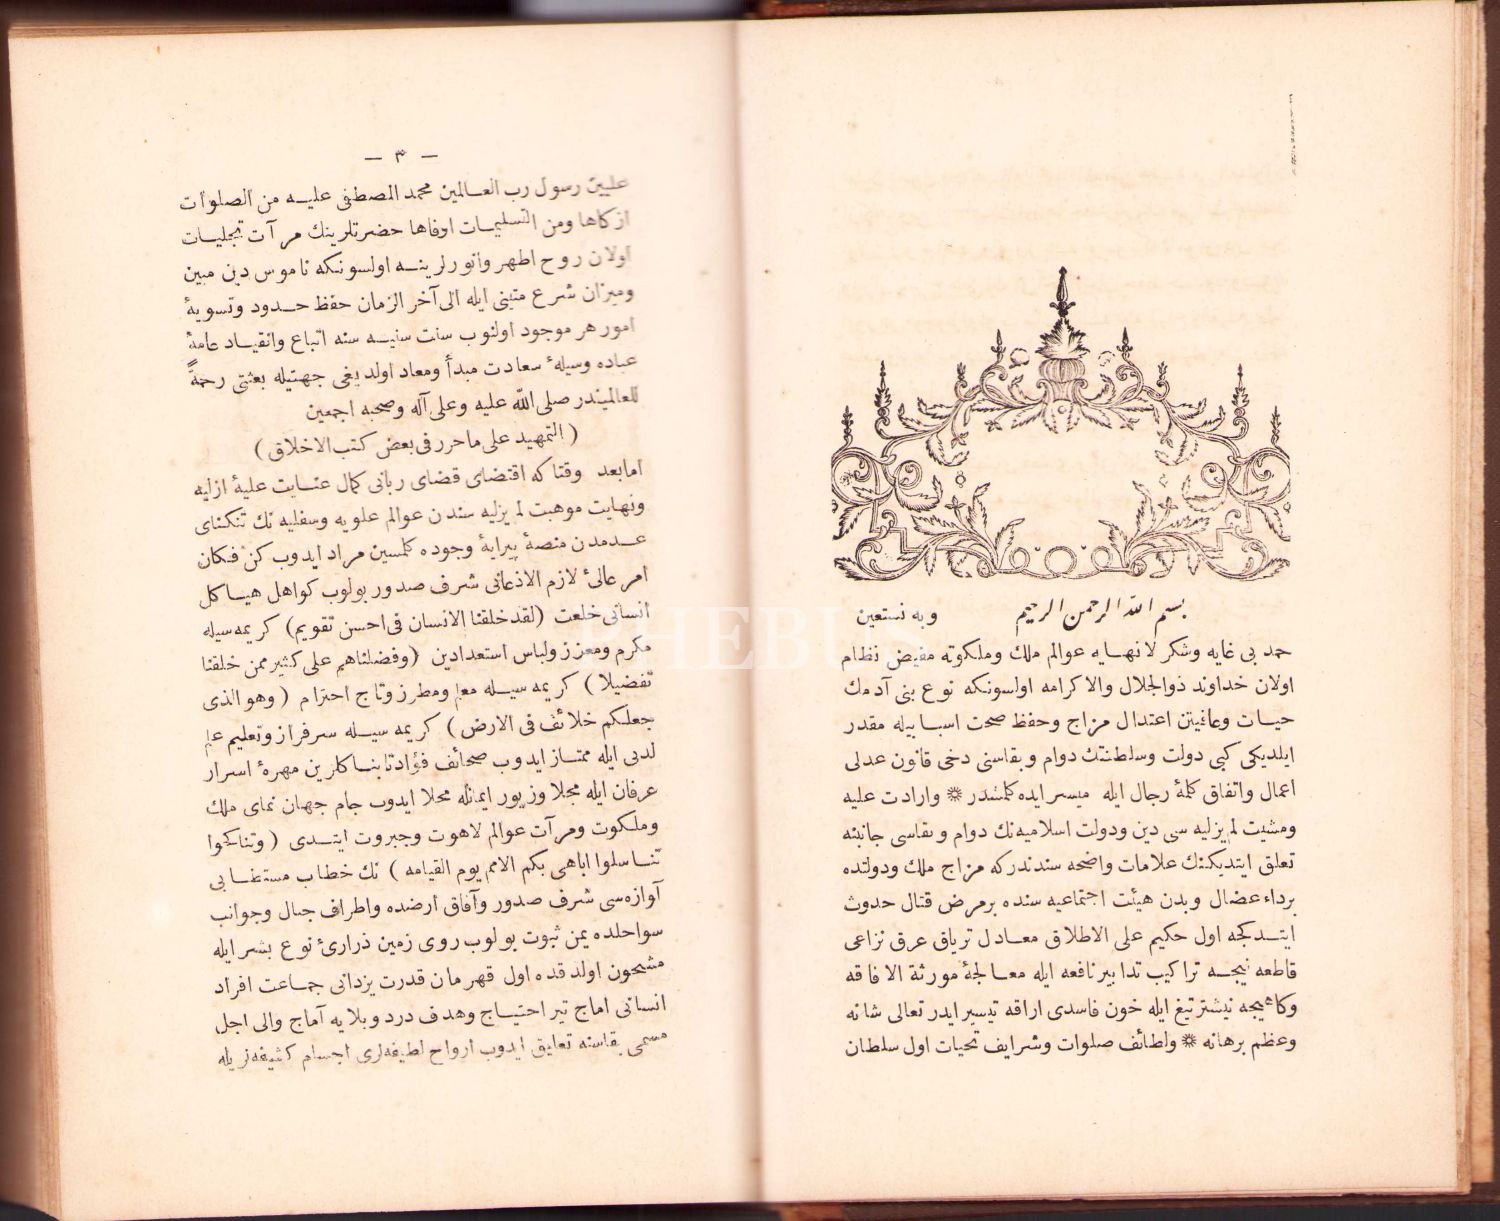 بسم الله الرحمن الرحيم وبه نستعين
حمد بى غايه وشكر لا نهايه عوالم ملك وملكوته مفيض نظام
اولان خداوند ذوالجلال والاكرامه اولسونكه نوع بنى آدمك
حيات وعافيتن اعتدال مزاج وحفظ صحت اسبابيله مقدر
ايلديكى كبى دولت وسلطنتك دوام وبقاسنى دخى قانون عدلى
اعمال واتفاق كلمۀ رجال ايله ميسر ايده كلمشدر ❊ وارادت عليه
ومشيت لم يزليه سى دين ودولت اسلاميه نك دوام وبقاسى جانبنه
تعلق ايتديكنك علامات واضحه سندندركه مزاج ملك ودولتده
برداء عضال وبدن هيئت اجتماعيه سنده برمرض قتال حدوث
ايتدكجه اول حكيم على الاطلاق معادل ترياق عرق نزاعى
قاطعه نيجه تراكيب تدابير نافعه ايله معالجۀ مورثة الافاقه
وكاهيجه نيشتر تيغ ايله خون فاسدى اراقه تيسير ايدر تعالى شانه
وعظم برهانه ❊ ولطائف صلوات وشرايف تحيات اول سلطان
— ٣ —
عليين رسول رب العالمين محمد المصطفى عليه من الصلوات
ازكاها ومن التسليمات اوفاها حضرتلرينك مرآت تجليات
اولان روح اطهر وانورلرينه اولسونكه ناموس دين مبين
وميزان شرع متينى ايله الى آخر الزمان حفظ حدود وتسويۀ
امور هر موجود اولنوب سنت سنيه سنه اتباع وانقياد عامۀ
عباده وسيلۀ سعادت مبدأ ومعاد اولديغى جهتيله بعثتى رحمةً
للعالميندر صلى الله عليه وعلى آله وصحبه اجمعين
( التمهيد على ماحرر فى بعض كتب الاخلاق )
امابعد وقتا كه اقتضاى قضاى ربانى كمال عنايت عليۀ ازليه
ونهايت موهبت لم يزليه سندن عوالم علويه وسفليه نك تنكناى
عدمدن منصۀ پيرايۀ وجوده كلمسين مراد ايدوب كن فكان
امر عالئ لازم الاذعانى شرف صدور بولوب كواهل هياكل
انسانى خلعت (لقد خلقنا الانسان فى احسن تقويم) كريمه سيله
مكرم ومعزز ولباس استعدادين (وفضلناهم على كثير ممن خلقنا
تفضيلا) كريمه سيله معلم ومطرز وتاج احترام ( وهو الذى
جعلكم خلائف فى الارض ) كريمه سيله سرفراز وتعليم علم
لدنى ايله ممتاز ايدوب صحائف فؤادتابناكلرين مهرۀ اسرار
عرفان ايله مجلا وزيور ايمانله محلا ايدوب جام جهان نماى ملك
وملكوت ومرآت عوالم لاهوت وجبروت ايتدى ( وتناكحوا
تناسلوا اباهى بكم الامم يوم القيامه ) نك خطاب مستطابى
آوازه سى شرف صدور وآفاق ارضده واطراف جبال وجوانب
سواحلده يمن ثبوت بولوب روى زمين ذرارئ نوع بشر ايله
مشحون اولدقده اول قهرمان قدرت يزدانى جماعت افراد
انسانى اماج تير احتياج وهدف درد وبلايه آماج والى اجل
مسمى بقاسنه تعليق ايدوب ارواح لطيفه لرى اجسام كثيفه لريله
PHEBUS